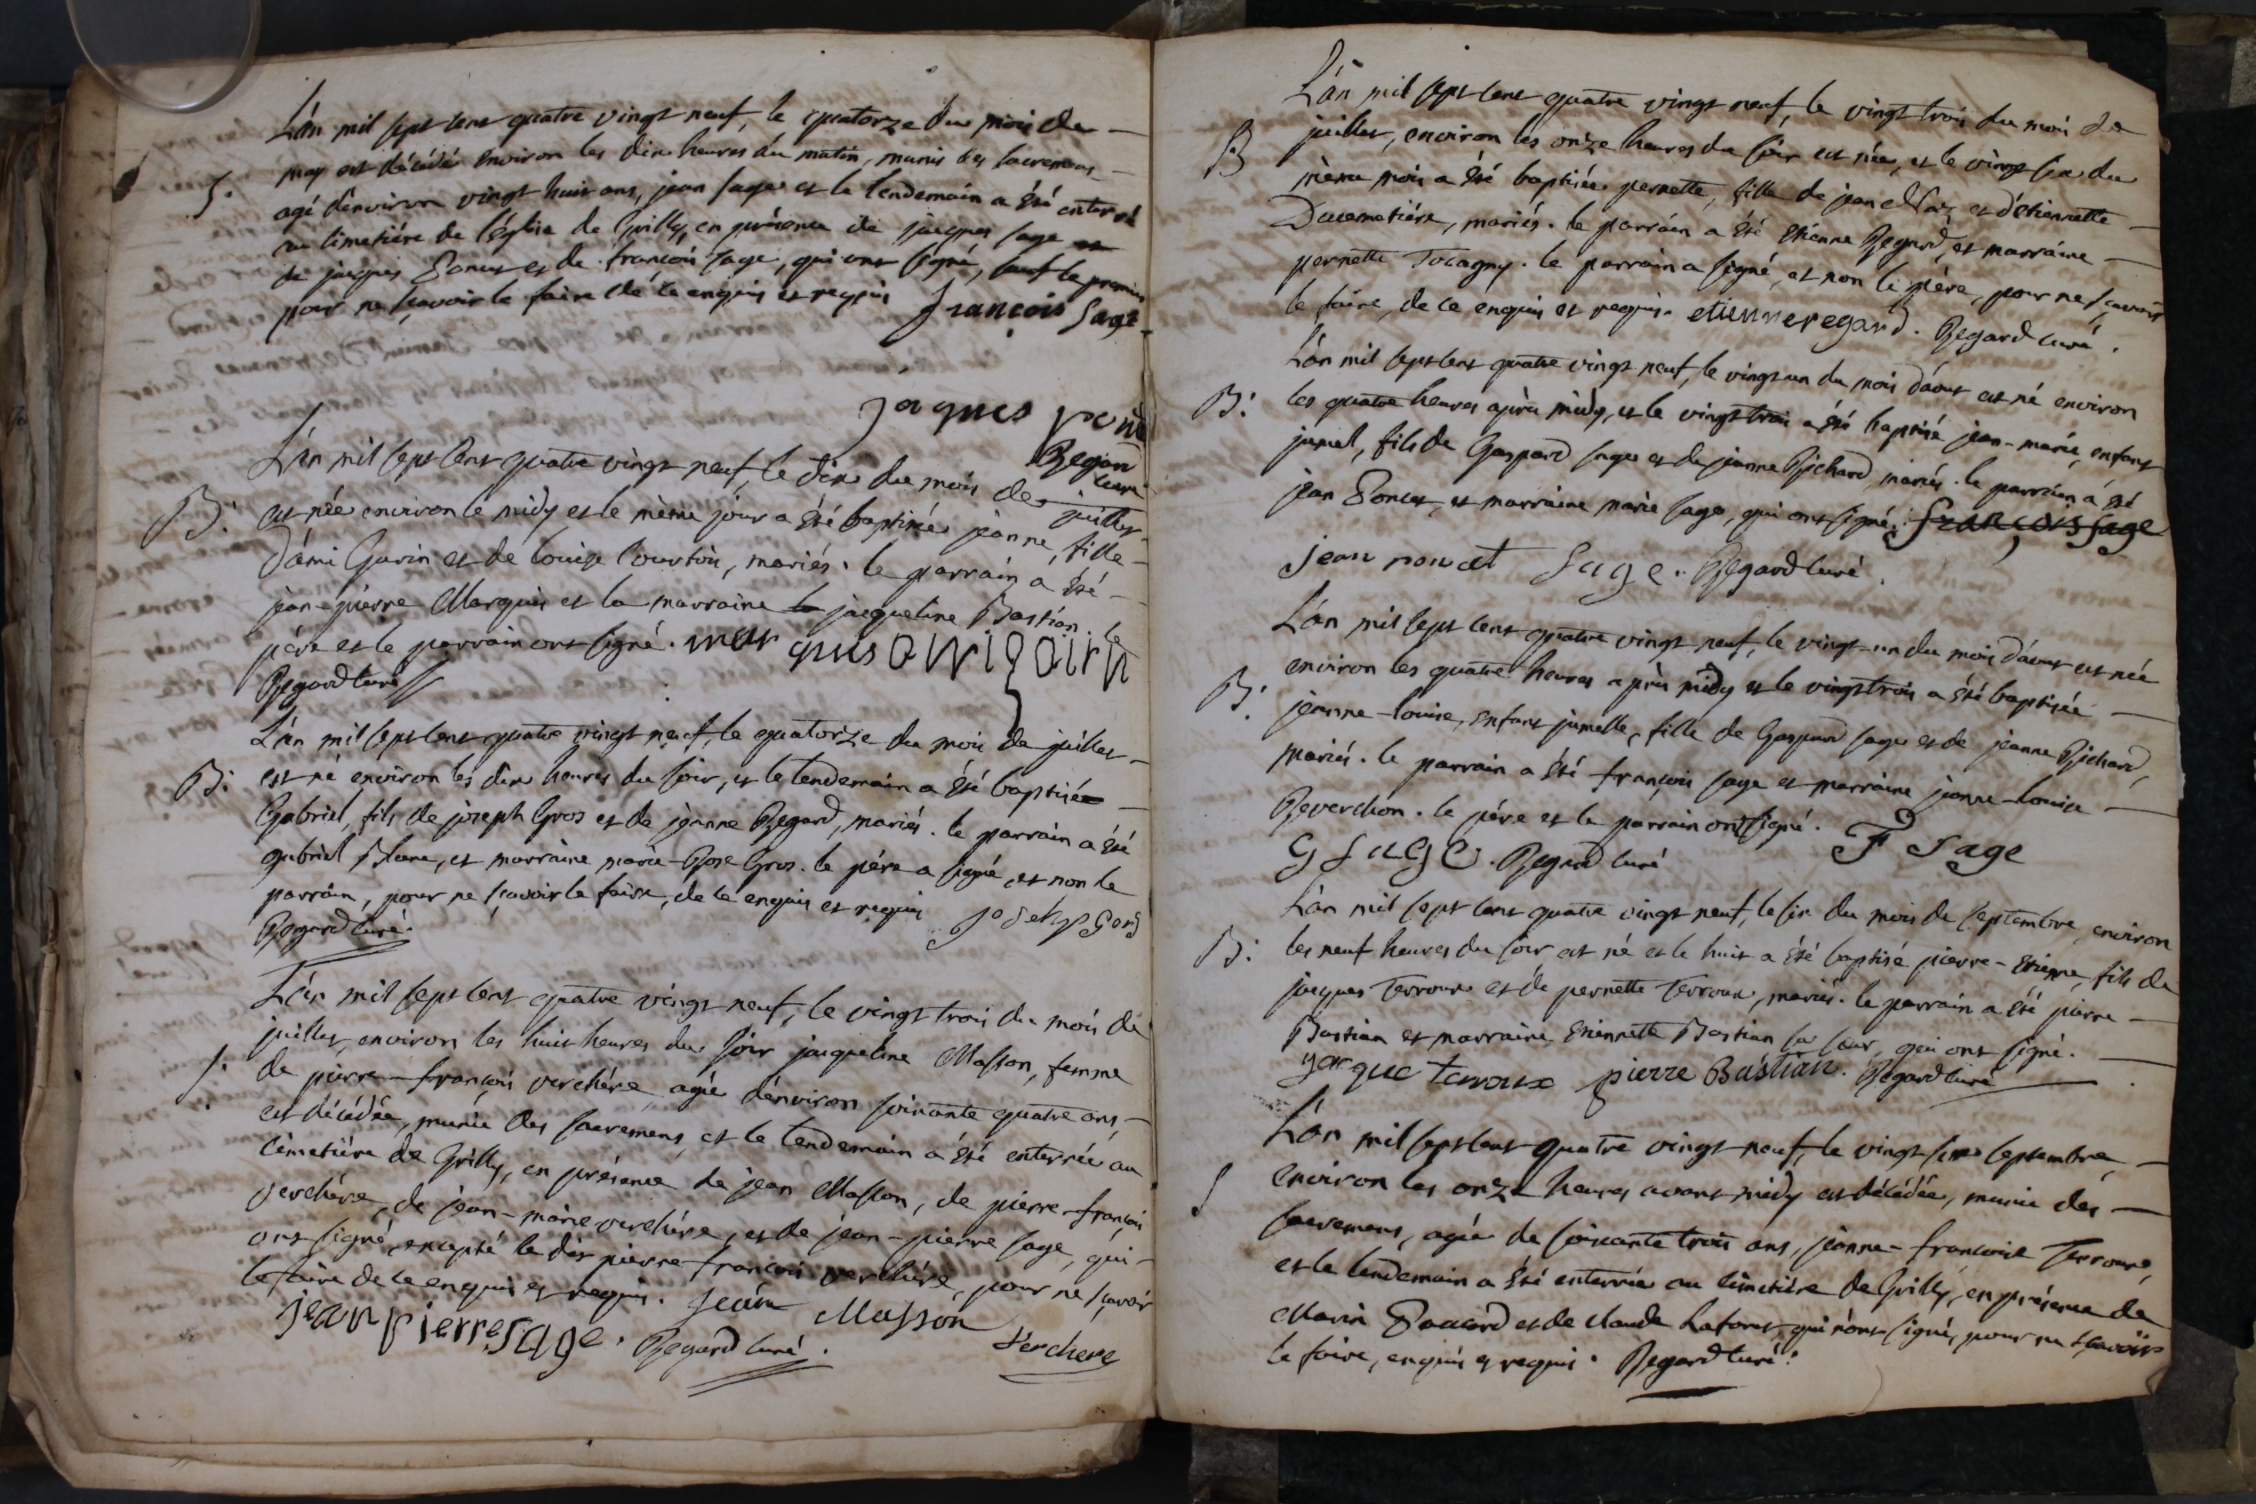 L'án mil sept cent quatre vingt neuf, le quatorze du mois de
may est décédé environ les dix heures du matin, munis des sacremens
S. agé d'environ vingt huit ans, jean sage et le lendemain a été enterré
au cimetiére de l'église de Grilly, en présence de jacques sage et
de jacques Poncet et de françois sage, qui ont signé, sauf le premier
pour ne sçavoir le faire de ce enquis et requis françois Sage
jaques ponc
Regard
curé
L'án mil sept cent quatre vingt neuf, le dix du mois de juillet
B: est née environ le midy et le même jour a été baptisée jeanne, fille
d'ámi Gurin et de louise Courtois, mariés. le parrain a été
jean-pierre Marquis et la marraine jacqueline Bastian. le
pére et le parrain ont signé. mar quis
Regard curé
L'án mil sept cent quatre vingt neuf, le quatorze du mois de juillet
B: est né environ les dix heures du soir, et le lendemain a été baptisé
Gabriel, fils de joseph Gros et de jeanne Regard, mariés. le parrain a été
gabriel Blanc, et marraine marie-Rose Gros. le pére a signé et non le
parrain, pour ne sçavoir le faire, de ce enquis et requis
Regard curé.
L'án mil sept cent quatre vingt neuf, le vingt trois du mois de
juillet, environ les huit heures du soir jacqueline Masson, femme
S. de pierre-françois verchére, agée d'environ soixante quatre ans
est décédée, munie des sacremens, et le lendemain a été enterrée au
cimetiére de Grilly, en présence de jean Masson, de pierre-françois
verchére, de jean-marie verchére, et de jean-pierre sage, qui
ont signé, excepté le dit pierre françois verchére, pour ne sçavoir
le faire de ce enquis et requis. jean Masson
jean pierre sage. Regard curé. Verchere
L'án mil sept cent quatre vingt neuf, le vingt trois du mois de
B juillet, environ les onze heures du soir est née, et le vingt six du
même mois a été baptisée pernette, fille de jean et d'étiennette
Ducemetiére, mariés. le parrain a été étienne Regard, et marraine
pernette Tocagny. le parrain a signé, et non le pére, pour ne sçavoir
le faire, de ce enquis et requis. etienneregard. Regard curé.
L'án mil sept cent quatre vingt neuf, le vingt un du mois d'aout est né environ
B: les quatre heures aprés midy, et le vingt trois a été baptisé jean-marie, enfant
jumel, fils de Gaspard sage et de jeanne Richard mariés. le parrain a été
jean Poncet, et marraine marie sage, qui ont signé. françois sage
jean poncet Sage. Regard curé.
L'án mil sept cent quatre vingt neuf, le vingt-un du mois d'aout est née
environ les quatre heures aprés midy et le vingt trois a été baptisée
B: jeanne-louise, enfant jumelle, fille de Gaspard sage et de jeanne Richard,
mariés. le parrain a été françois sage et marraine jeanne-louise
Reverchon. le pére et le parrain ont signé. F Sage
G SAGE. Regard curé
L'án mil sept cent quatre vingt neuf, le six du mois de septembre, environ
B: les neuf heures du soir est né et le huit a été baptisé pierre-étienne, fils de
jacques Terroux et de pernette Terroux, mariés. le parrain a été pierre
Bastian et marraine étiennette Bastian sa sœur, qui ont signé.
yacque terroux pierre Bastian. Regard curé
L'án mil sept cent quatre vingt neuf, le vingt six septembre,
S environ les onze heures avant midy est décédée, munie des
sacremens, agée de soixante trois ans, jeanne-françoise Terroux,
et le lendemain a été enterrée au cimetiére de Grilly, en présence de
Marin Poncard et de claude Lafont, qui n'ont signé, pour ne sçavoir
le faire, enquis et requis. Regard curé.